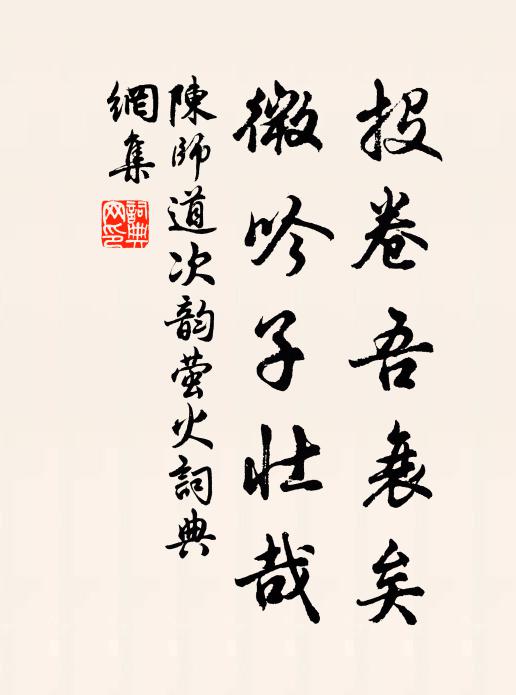 投卷吾衰矣
微吟子壯哉
陳師道次韵螢火詞典
網集
詞典网印